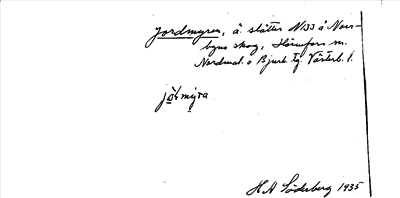 Jordmyren, ä. slåtter N133 å Norr-
byns skog, Hörnefors m.
Nordmal. o Bjurh. tg. Västerb. l.
jo̤ṛmy̤ra
H A Söderberg 1935